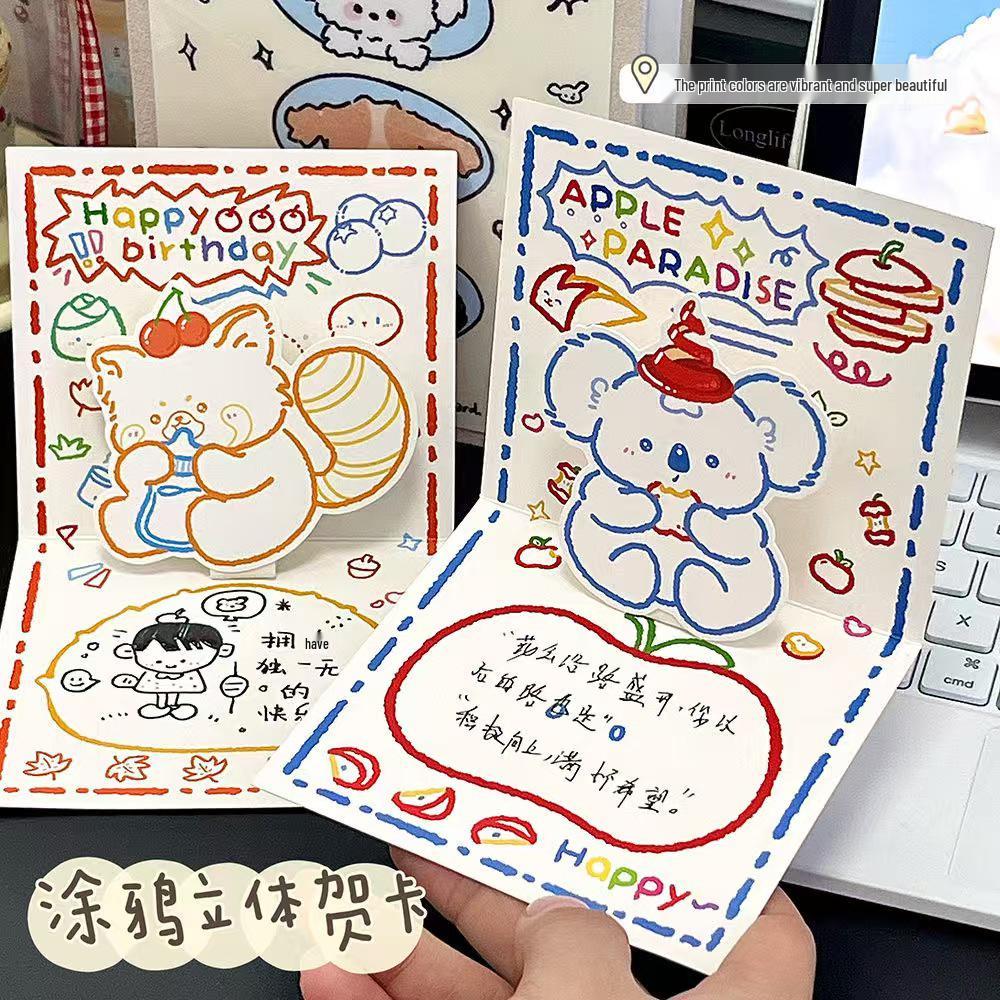 The print colors are vibrant and super beautiful
Longlif
Happy
!! birthday
APPLE
PARADISE
ard.
拥 have
独一无
。的
快乐
盛开,你以
后的路也是”
“积极向上,满怀希望。”
Happy~
x
⌘
cmd
涂鸦立体贺卡